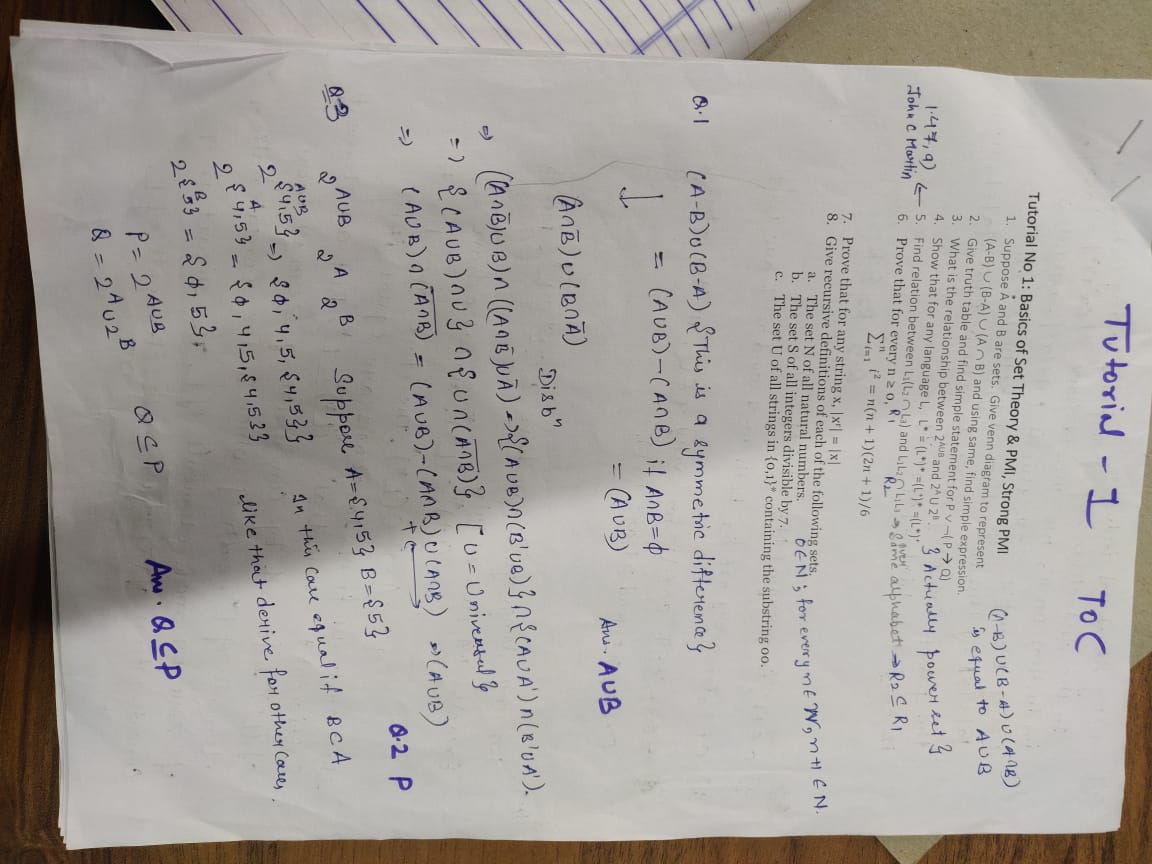 Tutorial - 1 TOC
Tutorial No 1: Basics of Set Theory & PMI, Strong PMI
1. Suppose A and B are sets. Give venn diagram to represent
(A-B) ∪ (B-A) ∪ (A ∩ B) and using same, find simple expression.
(A-B)∪(B-A)∪(A∩B)
is equal to A∪B
2. Give truth table and find simple statement for P ∨ ¬( P → Q)
3. What is the relationship between 2^A∪B and 2^A ∪ 2^B. { Actually power set }
4. Show that for any language L, L* = (L*)* =(L⁺)* =(L*)⁺.
1.47, 9) ← 5. Find relation between L₁(L₂ ∩ L₃) and L₁L₂ ∩ L₁L₃ → given same alphabet → R2 ⊆ R1
R1 R2
John C Martin
6. Prove that for every n ≥ 0,
∑ⁿᵢ₌₁ i² = n(n + 1)(2n + 1)/6
7. Prove that for any string x, |xʳ| = |x|
8. Give recursive definitions of each of the following sets.
a. The set N of all natural numbers. 0∈N; for every n∈N, n+1∈N.
b. The set S of all integers divisible by 7.
c. The set U of all strings in {0,1}* containing the substring 00.
Q.1 (A-B)∪(B-A) {This is a symmetric difference}
↓ = (A∪B)-(A∩B) if A∩B=ϕ
= (A∪B) Ans. A∪B
(A∩B̄)∪(B∩Ā) Disbⁿ
⇒ ((A∩B̄)∪B)∩((A∩B̄)∪Ā) ⇒ {(A∪B)∩(B'∪B)}∩{(A∪A')∩(B'∪A')}.
⇒ {(A∪B)∩∪} ∩ {∪∩(A̅∩̅B̅)}. [∪=Universal}
⇒ (A∪B)∩(A̅∩̅B̅) = (A∪B)-(A∩B)∪(A∩B) ⇒(A∪B)
Q.2 P
Q-3 2^A∪B 2^A 2^B Suppose A={4,5} B={5}
2^A∪B {4,5} ⇒ {ϕ,4,5,{4,5}} In this case equal if B⊂A
2^A {4,5} = {ϕ,4,5,{4,5}} like that derive for other cases.
2^B {5} = {ϕ,5}
P = 2^A∪B Q ⊆ P Ans. Q⊆P
Q = 2^A∪2^B